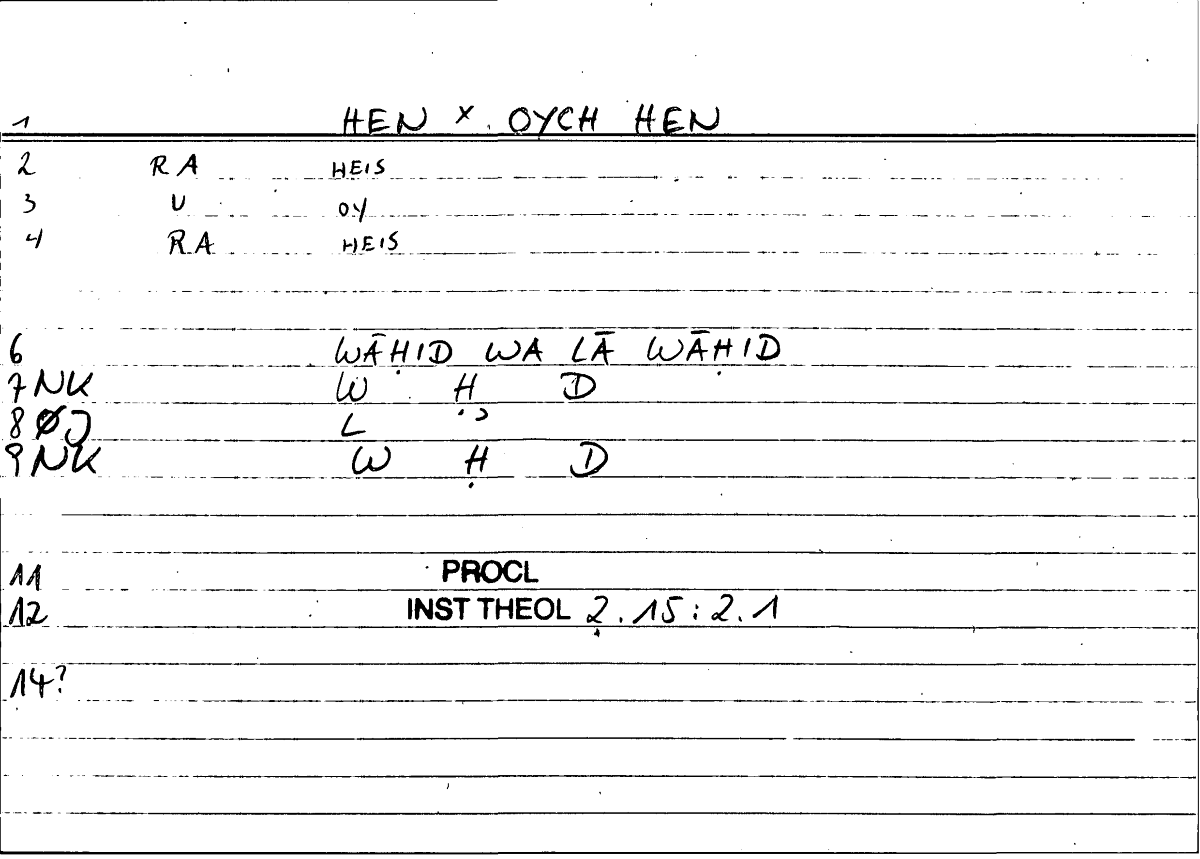 1 HEN x. OYCH HEN
2 RA HEIS
3 U OY
4 RA HEIS
6 WĀḤID WA LĀ WĀḤID
7 NK W Ḥ D
8 ØJ L
9 NK W Ḥ D
11 PROCL
12 INST THEOL 2.15:2.1
14?